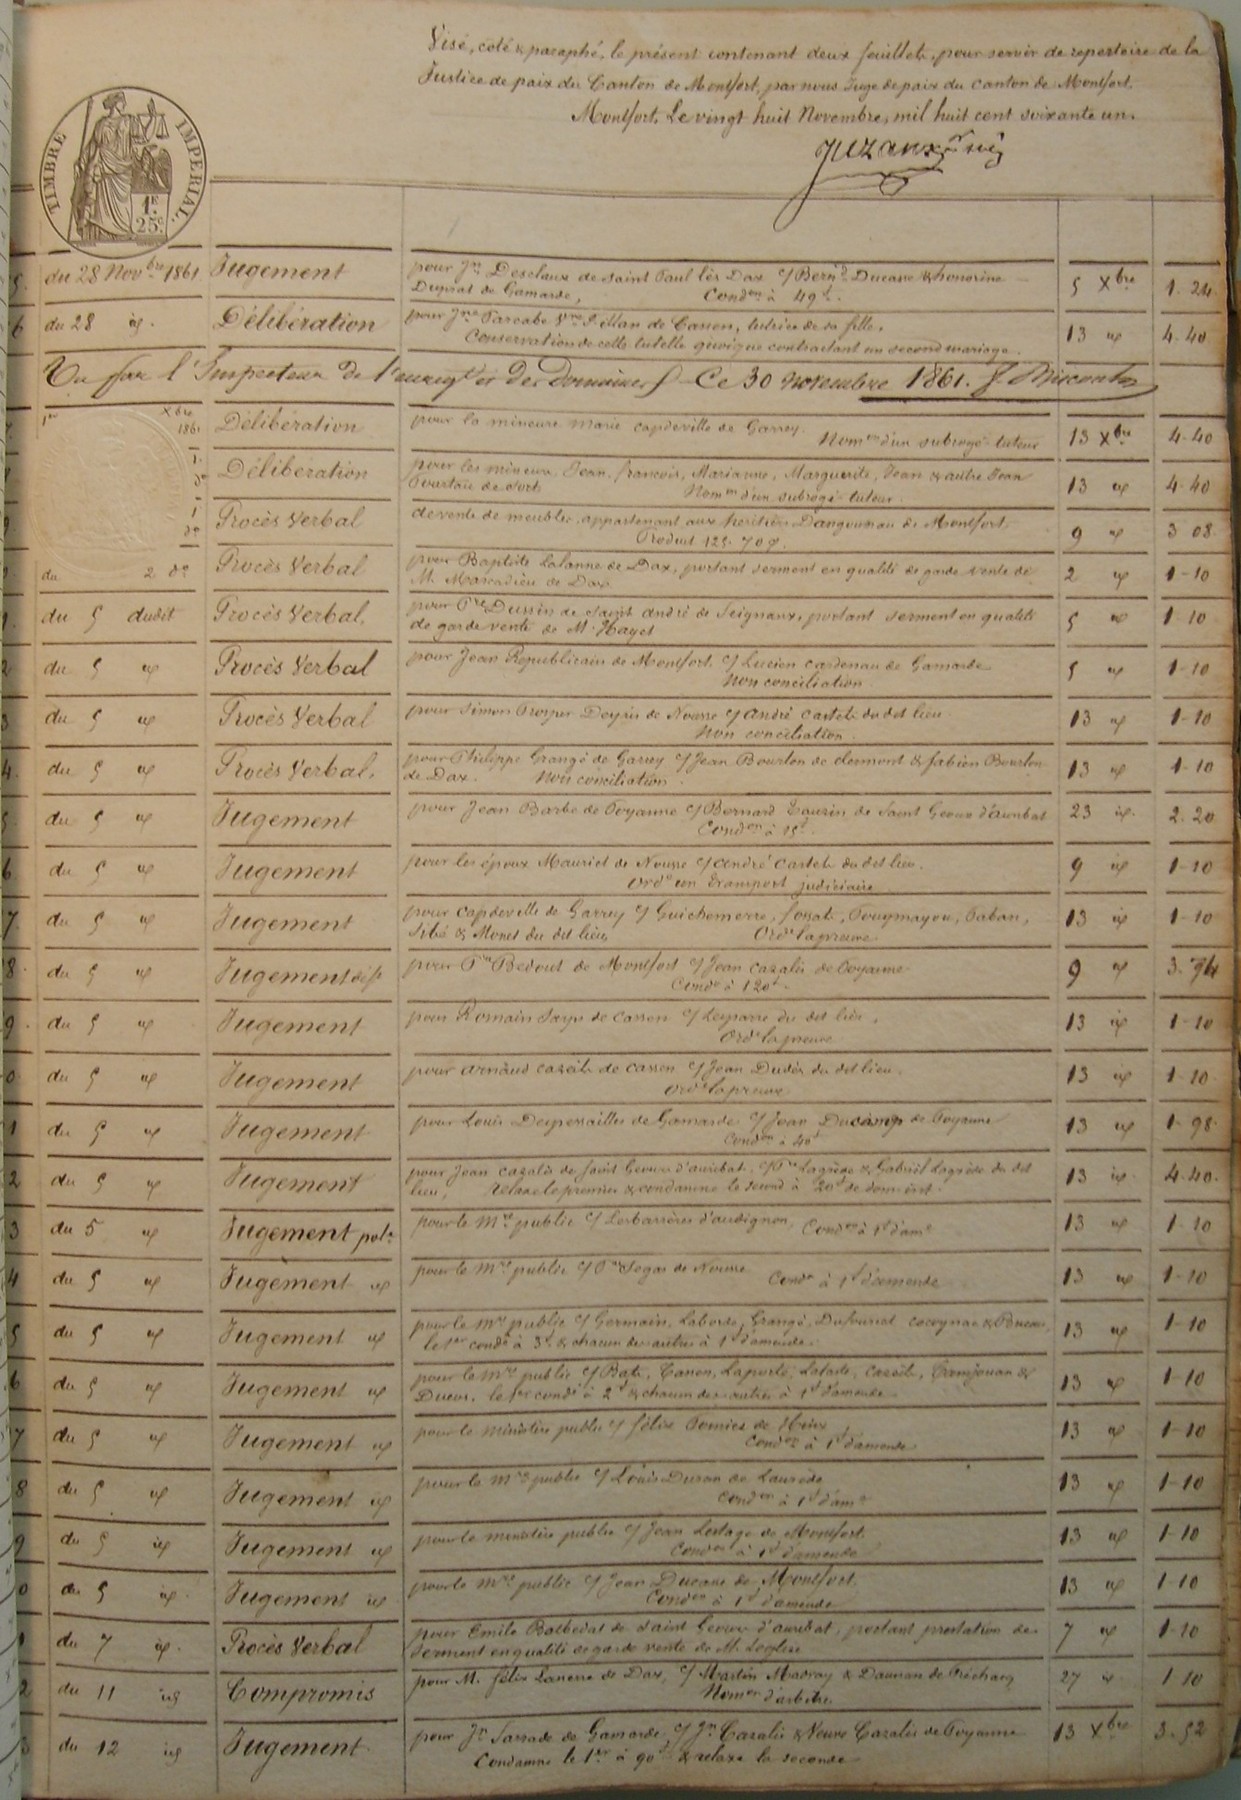 Visé, coté & paraphé, le présent contenant deux feuillets, pour servir de repertoire de la
Justice de paix du Canton de Montfort, par nous Juge de paix du canton de Montfort.
Montfort, Le vingt huit Novembre, mil huit cent soixante un.
TIMBRE IMPERIAL.
1F 25c
5 du 28 Novbre 1861 Jugement pour Jn Desclaux de Saint Paul lès Dax c/ Bernd Ducasse & honorine 5 Xbre 1.24
Duprat de Gamarde, Condon à 49f.
6 du 28 id. Délibération pour Jne Darcabe Vve de Canen, tutrice de sa fille. 13 id 4.40
Conservation de cette tutelle quoique contractant un second mariage.
Vu par l'Inspecteur de l'enregt et des Domaines Ce 30 novembre 1861.
1er Xbre 1861 Délibération pour la mineure Marie Capdeville de Garrey. 13 Xbre 4.40
Nomon d'un subrogé-tuteur
1 do Délibération pour les mineurs Jean, francois, Marianne, Marguerite, Jean & autre Jean 13 id 4.40
Tourtau de Sort Nomon d'un subrogé-tuteur.
1 do Procès Verbal de vente de meubles appartenant aux heritiers Dangoumau de Montfort. 9 id 3 08
Produit 125.70
du 2 do Procès Verbal pour Baptiste Lalanne de Dax, portant serment en qualité de garde vente de 2 id 1-10
M. Marcadieu de Dax
du 5 dudit Procès Verbal, pour Pre Dussin de Saint André de Seignaux, portant serment en qualité 5 id 1 10
de garde vente de M. Hayet
2 du 5 id Procès Verbal pour Jean Republicain de Montfort c/ Lucien Cardenau de Gamarde 5 id 1-10
Non conciliation.
3 du 5 id Procès Verbal pour Simon Prosper Deyris de Nousse c/ André Castets du dit lieu 13 id 1-10
Non conciliation.
4. du 5 id Procès Verbal. pour Philippe Grangé de Garrey c/ Jean Bourlon de Clermont & fabien Bourlon 13 id 1-10
de Dax. Non conciliation
5 du 5 id Jugement pour Jean Barbe de Poyanne c/ Bernard Lauzin de Saint Geours d'Auribat 23 id. 2.20
Condon à 15f.
6 du 5 id Jugement pour les époux Mauriet de Nousse c/ André Castets du dit lieu. 9 id 1-10
Ord un transport judiciaire
7. du 5 id Jugement pour Capdeville de Garrey c/ Guichemerre, Tougmayou, Taban, 13 id 1-10
Sibé & Monet du dit lieu Ord la preuve
8. du 5 id Jugement déft pour Bedout de Montfort c/ Jean Cazalis de Poyanne 9 id 3.74
Cond à 120f.
9. du 5 id Jugement pour Romain Sarps de Cassen c/ Lesparre du dit lieu. 13 id 1-10
Ord la preuve
0. du 5 id Jugement pour Arnaud Cazeils de Cassen c/ Jean Dudes du dit lieu. 13 id 1-10
ord la preuve
1 du 5 id Jugement pour Louis Despessailles de Gamarde c/ Jean Ducamp de Poyanne 13 id 1-98
Condon à 40f
2 du 5 id Jugement pour Jean Cazalis de Saint Geours d'Auribat, c/ Lagrèze & Gabriel Lagrèze du dit 13 id 4.40.
lieu, relaxe le premier & condamne le second à 20f de dom. int.
3 du 5 id Jugement polce pour le Mre public c/ Lesbarrères d'Audignon, Condon à 1f d'amde 13 id 1-10
4 du 5 id Jugement id pour le Mre public c/ Segas de Nousse Condon à 1f d'amende 13 id 1-10
5 du 5 id Jugement id pour le Mre public c/ Germain, Laborde, Grangé, Dufourcet, Cocoynac & 13 id 1-10
le 1er condé à 3f & chacun des autres à 1f d'amende.
6 du 5 id Jugement id pour le Mre public c/ Bats, Canen, Laporte, Lafaite, Cazeils, & 13 id 1-10
Ducos, le 1er condé à 2f & chacun des autres à 1f d'amende
7 du 5 id Jugement id pour le ministère public c/ félix Pomiès de Hinx 13 id 1-10
Condon à 1f d'amende
8 du 5 id Jugement id pour le Mre public c/ Louis Duran de Laurède 13 id 1-10
Condon à 1f d'amde
9 du 5 id Jugement id pour le ministère public c/ Jean Lestage de Montfort. 13 id 1-10
Condon à 1f d'amende
0 du 5 id. Jugement id pour le Mre public c/ Jean Ducasse de Montfort. 13 id 1-10
Condon à 1f d'amende
du 7 id. Procès Verbal pour Emile Balbedat de Saint Geours d'auribat, portant prestation de 7 id 1-10
serment en qualité de garde vente de M. Loglise
2 du 11 id Compromis pour M. félix Lanesse de Dax, c/ Martin Madray & Daunan de Préchacq 27 id 1 10
Nomon d'arbitre
3 du 12 id Jugement pour Jn Sarrade de Gamarde, c/ Jn Cazalis & Veuve Cazalis de Poyanne 13 Xbre 3.52
Condamne le 1er à 90f & relaxe la seconde